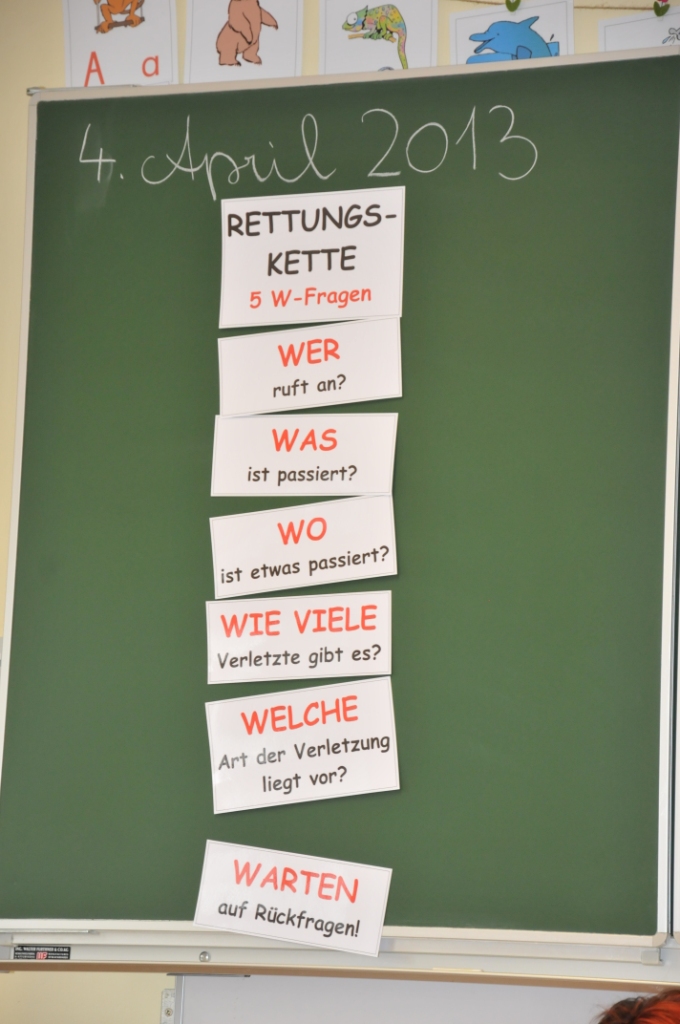 A a
4. April 2013
RETTUNGS-
KETTE
5 W-Fragen
WER
ruft an?
WAS
ist passiert?
WO
ist etwas passiert?
WIE VIELE
Verletzte gibt es?
WELCHE
Art der Verletzung
liegt vor?
WARTEN
auf Rückfragen!